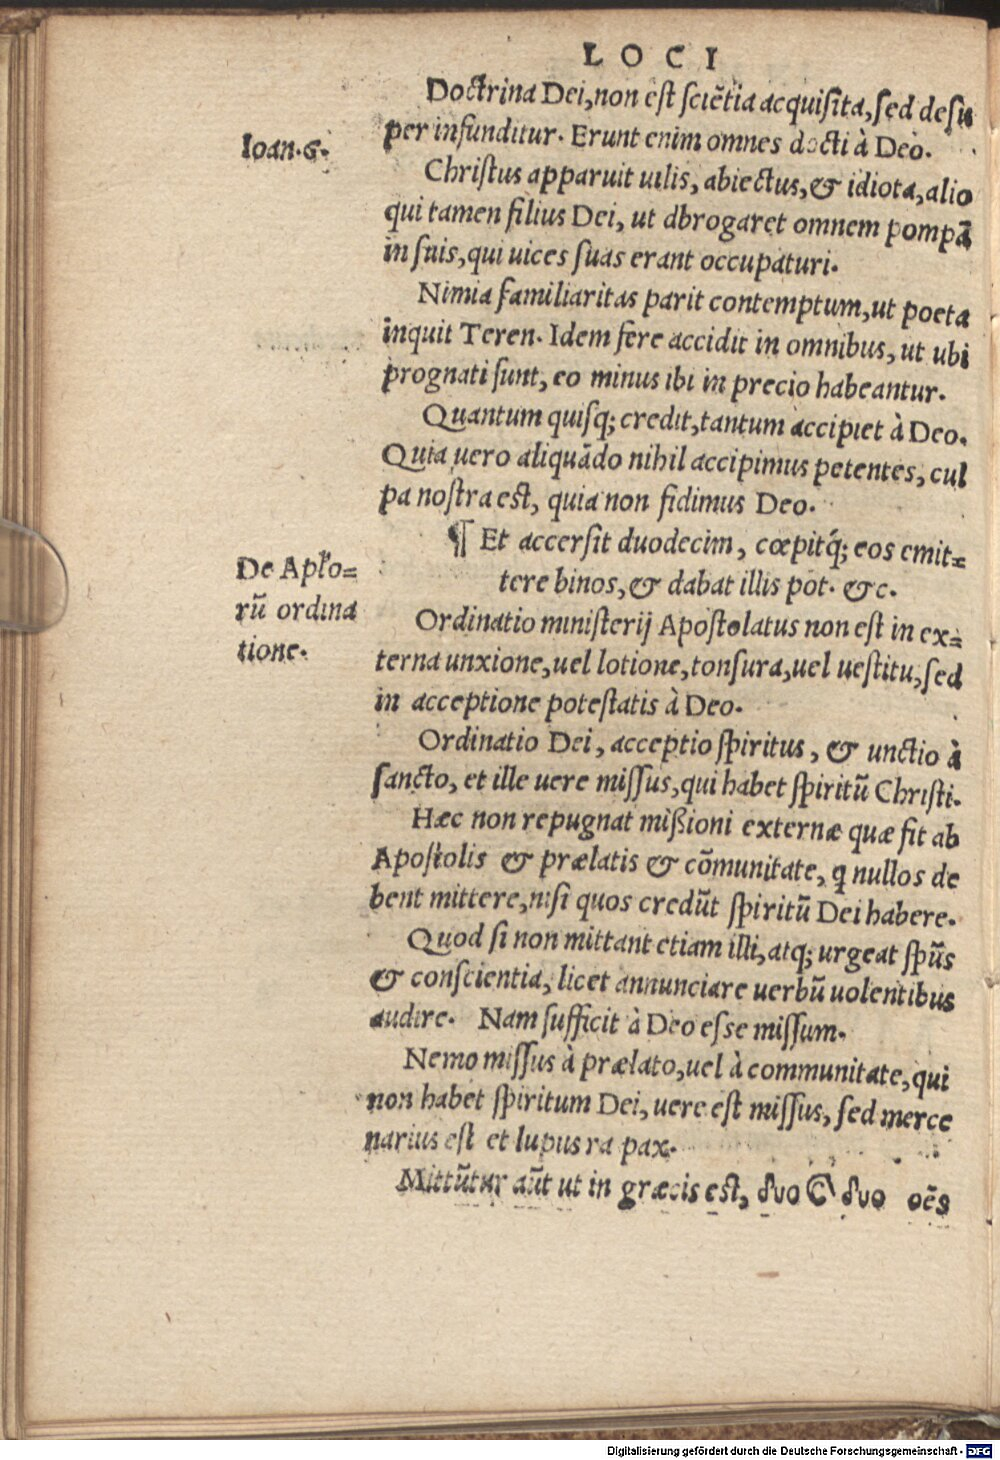 LOCI
Doctrina Dei, non est sciētia acquisita, sed desu
per infunditur. Erunt enim omnes docti à Deo.
Ioan. 6.
Christus apparuit uilis, abiectus, & idiota, alio
qui tamen filius Dei, ut abrogaret omnem pompā
in suis, qui uices suas erant occupaturi.
Nimia familiaritas parit contemptum, ut poeta
inquit Teren. Idem fere accidit in omnibus, ut ubi
prognati sunt, eo minus ibi in precio habeantur.
Quantum quisq; credit, tantum accipiet à Deo.
Quia uero aliquādo nihil accipimus petentes, cul
pa nostra est, quia non fidimus Deo.
¶ Et accersit duodecim, cœpitq́; eos emit=
tere binos, & dabat illis pot. &c.
De Apło=
rū ordina
tione.
Ordinatio ministerij Apostolatus non est in ex=
terna unxione, uel lotione, tonsura, uel uestitu, sed
in acceptione potestatis à Deo.
Ordinatio Dei, acceptio spiritus, & unctio à
sancto, et ille uere missus, qui habet spiritū Christi.
Hæc non repugnat mißioni externæ quæ fit ab
Apostolis & prælatis & cōmunitate, q nullos de
bent mittere, nisi quos credūt spiritū Dei habere.
Quod si non mittant etiam illi, atq; urgeat spūs
& conscientia, licet annunciare uerbū uolentibus
audire. Nam sufficit à Deo esse missum.
Nemo missus à prælato, uel à communitate, qui
non habet spiritum Dei, uere est missus, sed merce
narius est et lupus rapax.
Mittūtur aūt ut in græcis est, δυο Ϗ δυο oēs
Digitalisierung gefördert durch die Deutsche Forschungsgemeinschaft - DFG